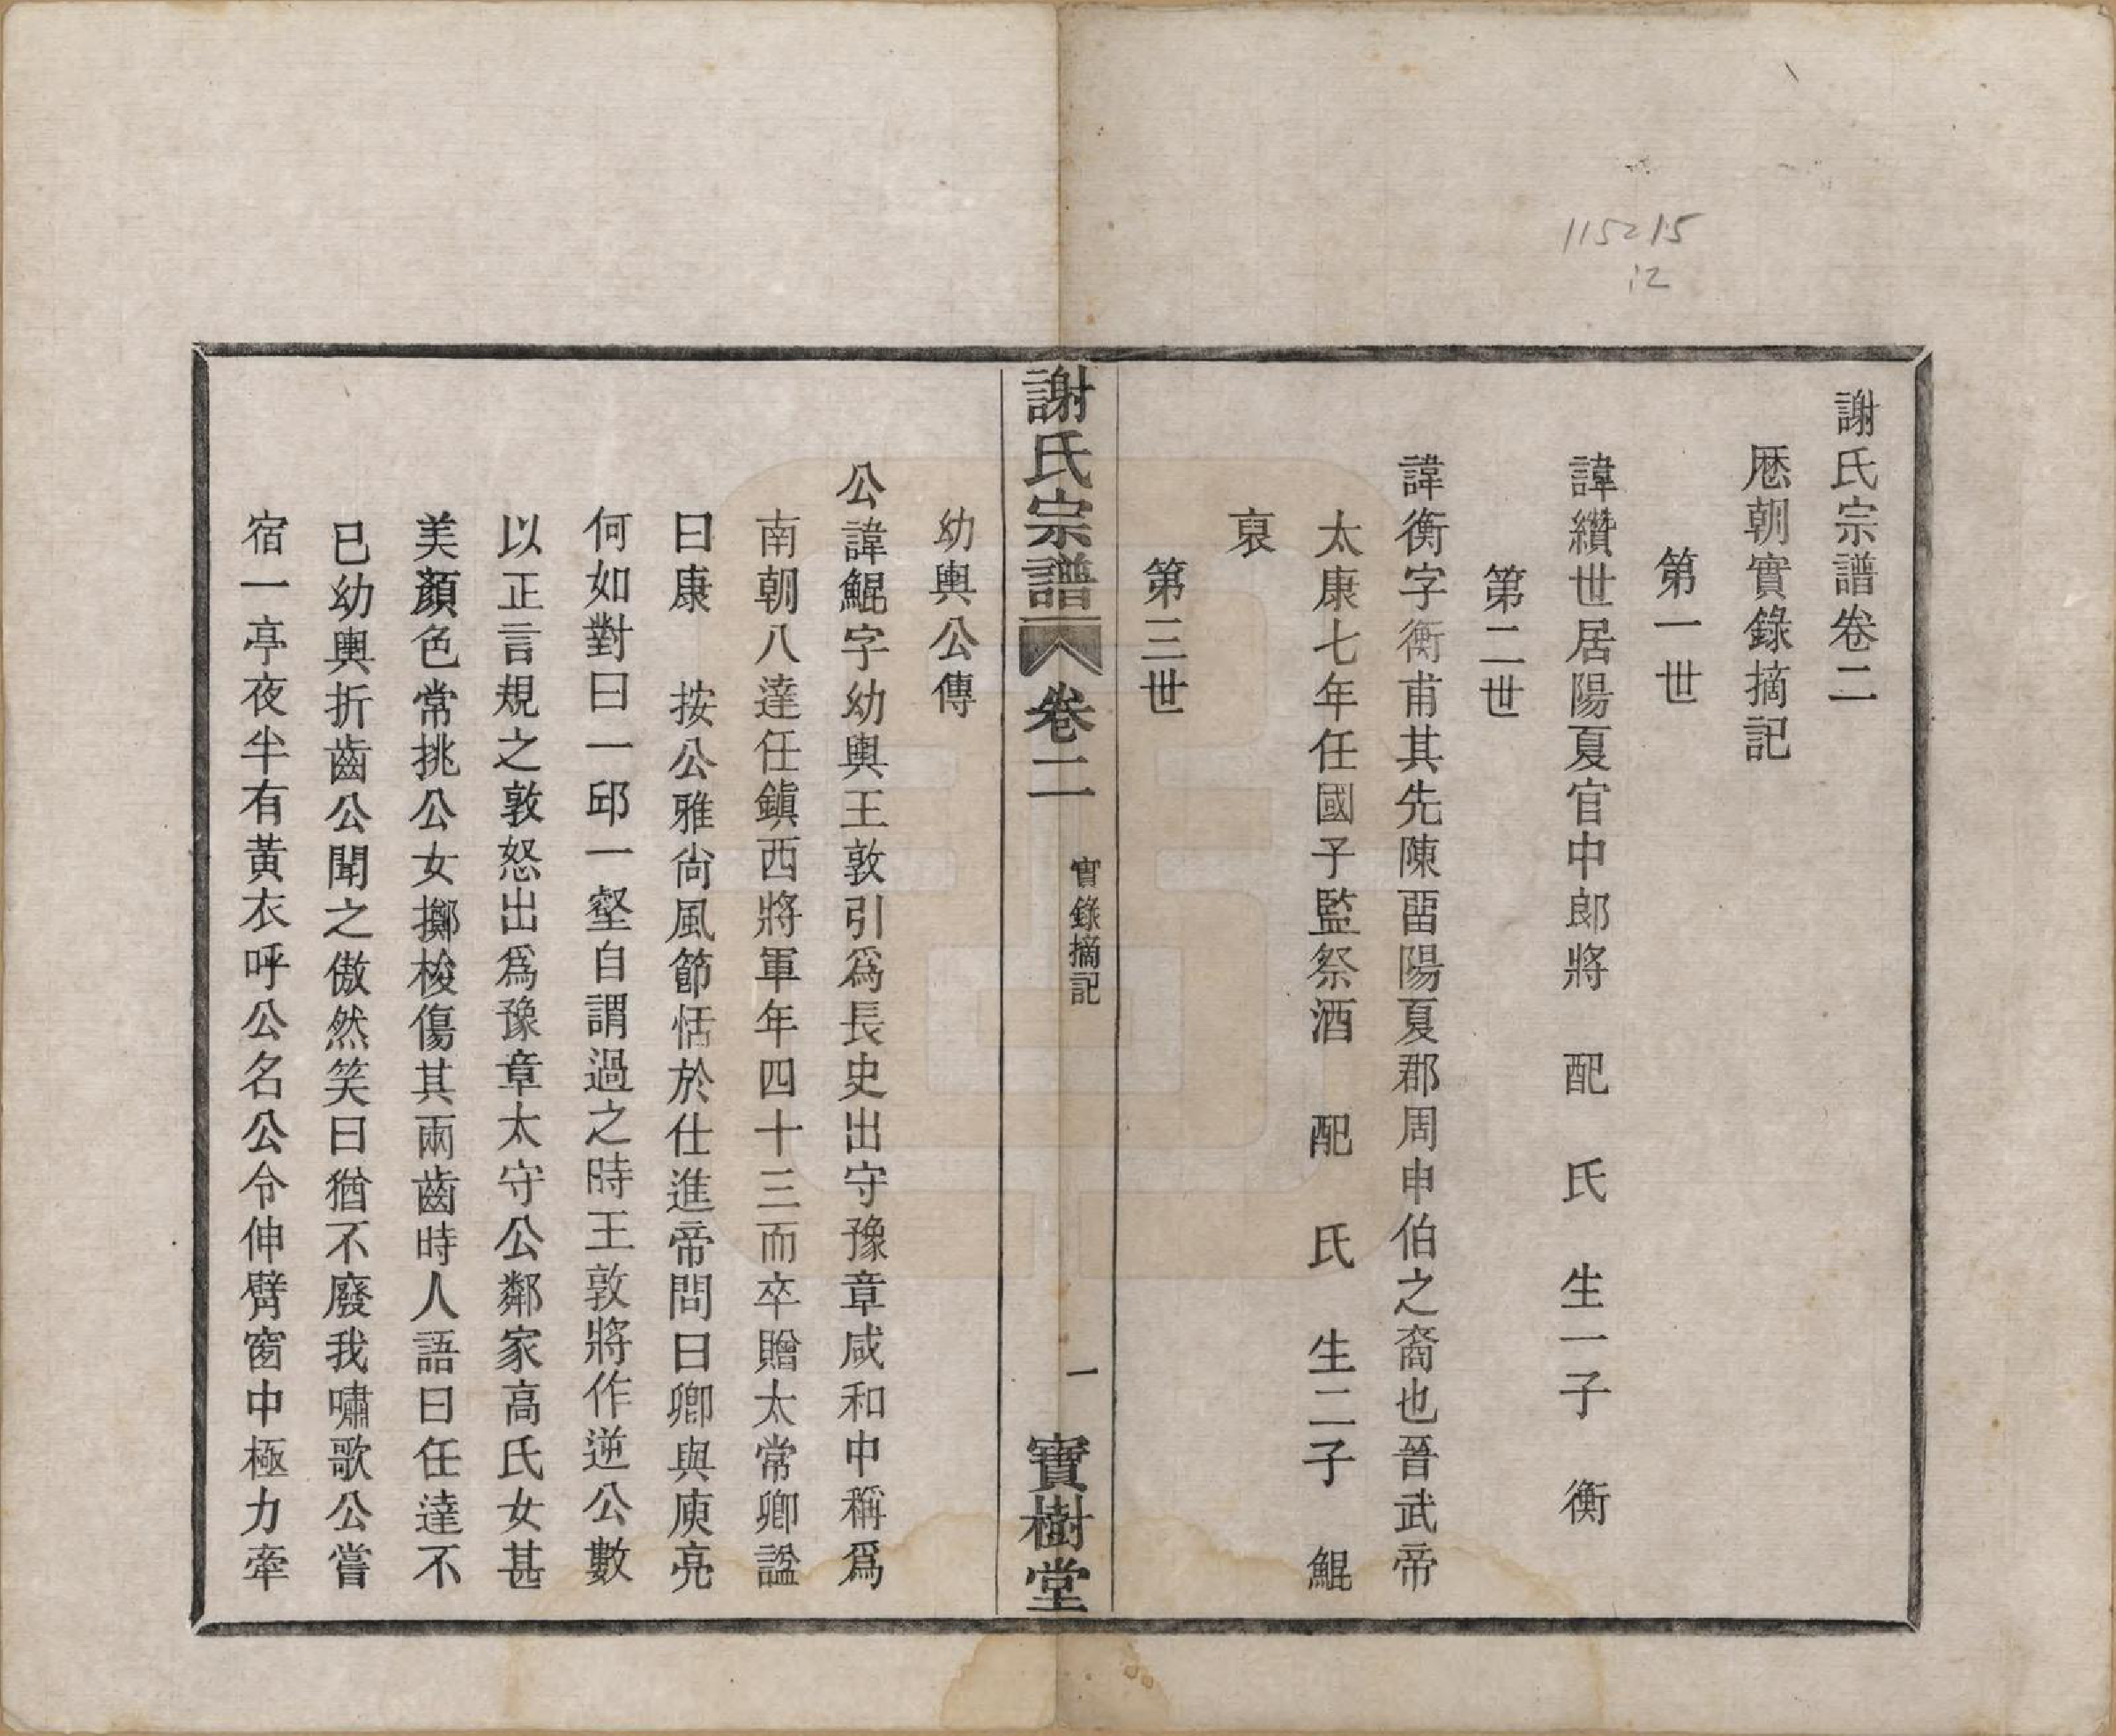 115215
12
謝氏宗譜卷二
厯朝實錄摘記
第一世
諱纘世居陽夏官中郞將　配　氏　生一子　衡
第二世
諱衡字衡甫其先陳畱陽夏郡周申伯之裔也晉武帝
太康七年任國子監祭酒　配　氏　生二子　鯤
裒
第三世
謝氏宗譜　卷二　實錄摘記　一　寶樹堂
幼輿公傳
公諱鯤字幼輿王敦引爲長史出守豫章咸和中稱爲
南朝八達任鎭西將軍年四十三而卒贈太常卿諡
曰康　按公雅尙風節恬於仕進帝問曰卿與庾亮
何如對曰一邱一壑自謂過之時王敦將作逆公數
以正言規之敦怒出爲豫章太守公鄰家高氏女甚
美顏色常挑公女擲梭傷其兩齒時人語曰任達不
已幼輿折齒公聞之傲然笑曰猶不廢我嘯歌公嘗
宿一亭夜半有黃衣呼公名公令伸臂窗中極力牽